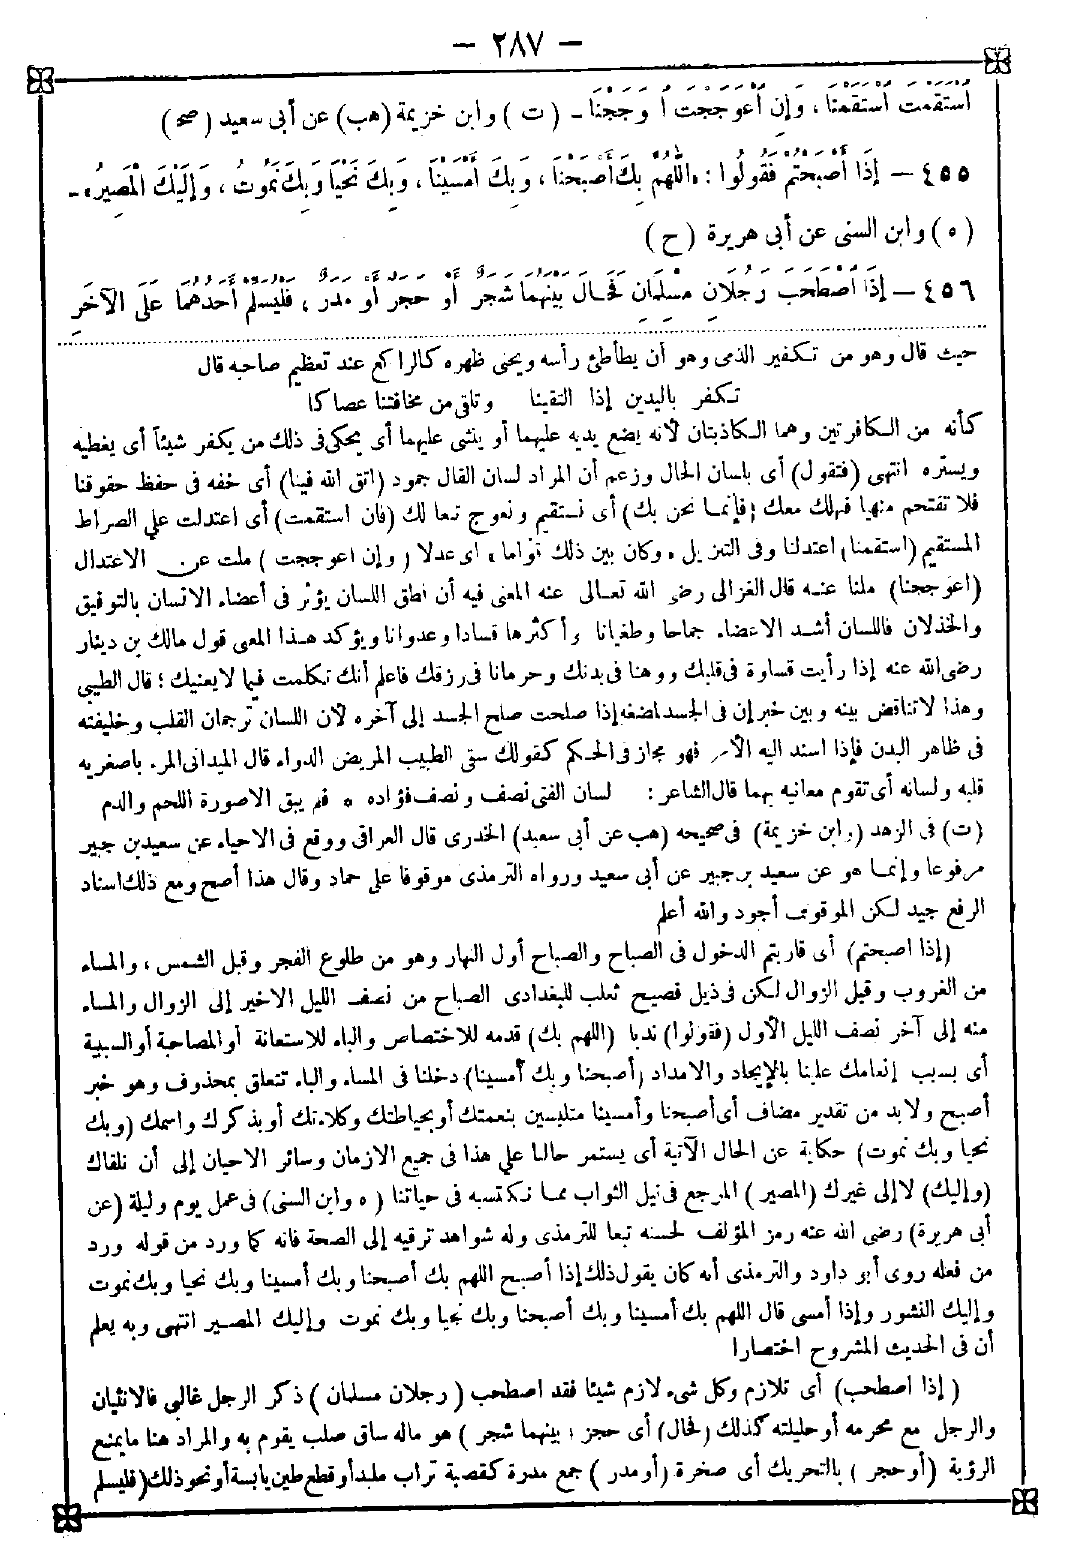 — ٢٨٧ —
اسْتَقَمْتَ اسْتَقَمْنَا ، وَإِنِ اعْوَجَجْتَ اعْوَجَجْنَا - ( ت ) وابن خزيمة (هب) عن أبى سعيد ( صح )
٤٥٥ — إِذَا أَصْبَحْتُمْ فَقُولُوا : «اللَّهُمَّ بِكَ أَصْبَحْنَا ، وَبِكَ أَمْسَيْنَا ، وَبِكَ نَحْيَا وَبِكَ نَمُوتُ ، وَإِلَيْكَ الْمَصِيرُ» -
( ه ) وابن السنى عن أبى هريرة ( ح )
٤٥٦ — إِذَا اصْطَحَبَ رَجُلَانِ مُسْلِمَانِ فَحَالَ بَيْنَهُمَا شَجَرٌ أَوْ حَجَرٌ أَوْ مَدَرٌ ، فَلْيُسَلِّمْ أَحَدُهُمَا عَلَى الْآخَرِ
حيث قال وهو من تكفير الذمى وهو أن يطأطئ رأسه ويحنى ظهره كالراكع عند تعظيم صاحبه قال
تكفر باليدين إذا التقينا وتلقى من مخافتنا عصاكا
كأنه من الكافرتين وهما الكاذبتان لأنه يضع يديه عليهما أو ينثنى عليهما أى يحكى فى ذلك من يكفر شيئاً أى يغطيه
ويستره انتهى (فتقول) أى بلسان الحال وزعم أن المراد لسان القال جمود (اتق الله فينا) أى خفه فى حفظ حقوقنا
فلا تقتحم منهيا فنهلك معك (فإنما نحن بك) أى نستقيم ونعوج تبعا لك (فان استقمت) أى اعتدلت على الصراط
المستقيم (استقمنا) اعتدلنا وفى التنزيل «وكان بين ذلك قواما» أى عدلا (وإن اعوججت) ملت عن الاعتدال
(اعوججنا) ملنا عنه قال الغزالى رضى الله تعالى عنه المعنى فيه أن نطق اللسان يؤثر فى أعضاء الانسان بالتوفيق
والخذلان فاللسان أشد الاعضاء جماحا وطغيانا وأكثرها فسادا وعدوانا ويؤكد هذا المعنى قول مالك بن دينار
رضى الله عنه إذا رأيت قساوة فى قلبك ووهنا فى بدنك وحرمانا فى رزقك فاعلم أنك تكلمت فيما لا يعنيك ؛ قال الطيبى
وهذا لا تناقض بينه وبين خبر إن فى الجسد لمضغه إذا صلحت صلح الجسد إلى آخره لأن اللسان ترجمان القلب وخليفته
فى ظاهر البدن فإذا اسند اليه الأمر فهو مجاز فى الحكم كقولك سقى الطبيب المريض الدواء قال الميدانى المرء باصغريه
قلبه ولسانه أى تقوم معانيه بهما قال الشاعر : لسان الفتى نصف ونصف فؤاده ه فلم يبق الاصورة اللحم والدم
(ت) فى الزهد (وابن خزيمة) فى صحيحه (هب عن أبى سعيد) الخدرى قال العراقى ووقع فى الاحياء عن سعيد بن جبير
مرفوعا وإنما هو عن سعيد بن جبير عن أبى سعيد ورواه الترمذى موقوفا على حماد وقال هذا أصح ومع ذلك اسناد
الرفع جيد لكن الموقوف أجود والله أعلم
(إذا اصبحتم) أى قاربتم الدخول فى الصباح والصباح أول النهار وهو من طلوع الفجر وقبل الشمس ، والمساء
من الغروب وقيل الزوال لكن فى ذيل فصيح ثعلب للبغدادى الصباح من نصف الليل الاخير إلى الزوال والمساء
منه إلى آخر نصف الليل الأول (فقولوا) ندبا (اللهم بك) قدمه للاختصاص والباء للاستعانة أو المصاحبة أو السببية
أى بسبب إنعامك علينا بالإيجاد والامداد (أصبحنا وبك أمسينا) دخلنا فى المساء والباء تتعلق بمحذوف وهو خبر
أصبح ولابد من تقدير مضاف أى أصبحنا وأمسينا متلبسين بنعمتك أو بحياطتك وكلاءتك أو بذكرك واسمك (وبك
نحيا وبك نموت) حكاية عن الحال الآتية أى يستمر حالنا على هذا فى جميع الازمان وسائر الاحيان إلى أن نلقاك
(وإليك) لا إلى غيرك (المصير) المرجع فى نيل الثواب مما نكتسبه فى حياتنا (ه وابن السنى) فى عمل يوم وليلة (عن
أبى هريرة) رضى الله عنه رمز المؤلف لحسنه تبعا للترمذى وله شواهد ترقيه إلى الصحة فانه كما ورد من قوله ورد
من فعله روى أبو داود والترمذى أنه كان يقول ذلك إذا أصبح اللهم بك أصبحنا وبك أمسينا وبك نحيا وبك نموت
وإليك النشور وإذا أمسى قال اللهم بك أمسينا وبك أصبحنا وبك نحيا وبك نموت وإليك المصير انتهى وبه يعلم
أن فى الحديث المشروح اختصارا
( إذا اصطحب) أى تلازم وكل شىء لازم شيئا فقد اصطحب ( رجلان مسلمان ) ذكر الرجل غالبى فالانثيان
والرجل مع محرمه أو حليلته كذلك (فحال) أى حجز ( بينهما شجر ) هو ماله ساق صلب يقوم به والمراد هنا ما يمنع
الرؤية (أو حجر ) بالتحريك أى صخرة (أو مدر ) جمع مدرة كقصبة تراب ملبد أو قطع طين يابسة أو نحو ذلك (فليسلم